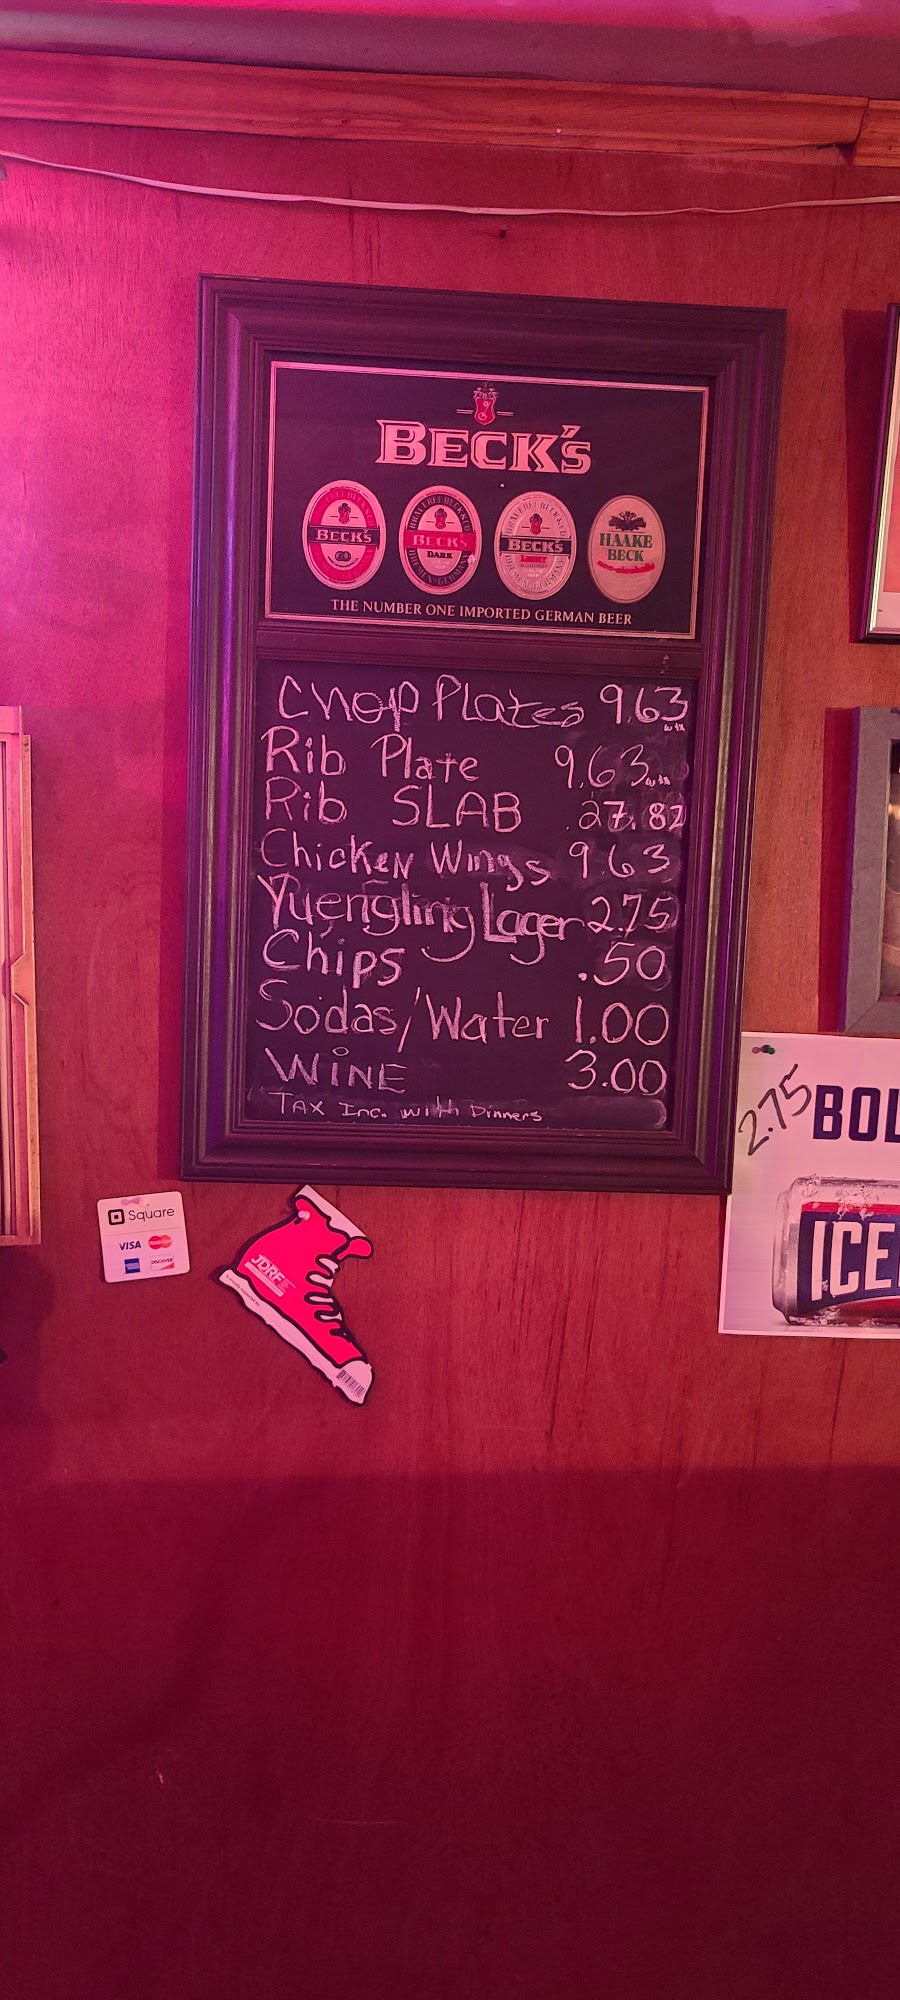 BECK'S
BECK'S
BECK'S
DARK
BECK'S
LIGHT
HAAKE
BECK
non-alcoholic
THE NUMBER ONE IMPORTED GERMAN BEER
Chop Plates 9.63
Rib Plate 9.63
Rib SLAB 27.82
Chicken Wings 9.63
Yuengling Lager 2.75
Chips .50
Sodas/Water 1.00
WiNE 3.00
TAX Inc. with Dinners
2.75 BOL
ICE
Square
VISA
DISCOVER
JDRF